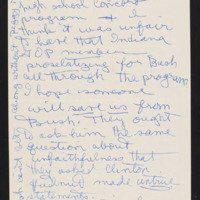 high school Concord
program & I
think it was unfair
to have that Indiana
GOP member
proselitizing for Bush
all through the program
I hope someone
will save us from
Bush. They ought
to ask him the same
question about
unfaithfulness that
they asked Clinton.
made untrue
statements.
without Peggy